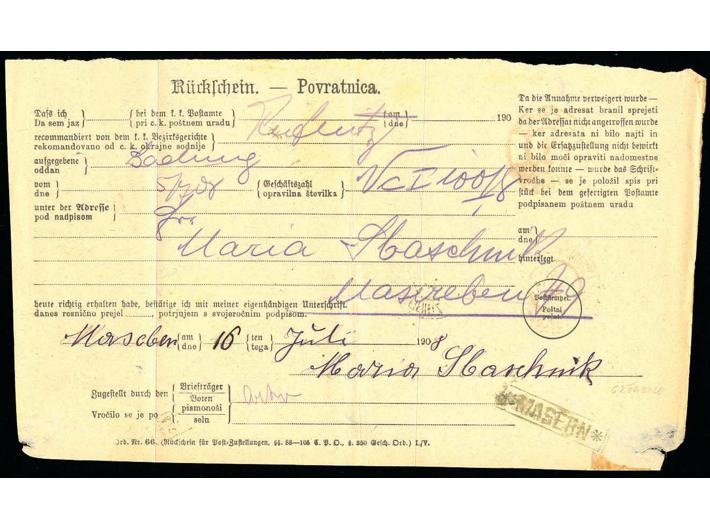 Rückschein. — Povratnica.
Daß ich } { bei dem k. k. Postamte } Reifnitz { am } 190
Da sem jaz } { pri c. k. poštnem uradu } { dne }
recommandiert von dem k. k. Bezirksgerichte }
rekomandovano od c. k. okrajne sodnije }
aufgegebene }
oddan }
vom } 5/7 08 { Geschäftszahl }
dne } { opravilna številka }
unter der Adresse } Frr
pod nadpisom }
Maria Staschnik
Masereben
heute richtig erhalten habe, bestätige ich mit meiner eigenhändigen Unterschrift.
danes resnično prejel, potrjujem s svojeročnim podpisom.
{ am } 16 { ten } Juli 1908
{ dne } { tega }
Maria Staschnik
Zugestellt durch den { Briefträger }
{ Boten }
Vročilo se je po { pismonoši }
{ seln }
Ord. Nr. 66. (Rückschein für Post-Zustellungen, §§. 88—106 C. P. O., §. 350 Gesch. Ord.) L/V.
Da die Annahme verweigert wurde —
Ker se je adresat branil sprejeti
da der Adressat nicht angetroffen wurde
— ker adresata ni bilo najti in
und die Ersatzzustellung nicht bewirkt
ni bilo moči opraviti nadomestne
werden konnte — wurde das Schrift-
vročbe — se je položil spis pri
stück bei dem gefertigten Postamte
podpisanem poštnem uradu
am }
dne }
hinterlegt.
Poststempel.
Poštni
pečat
MASERN*